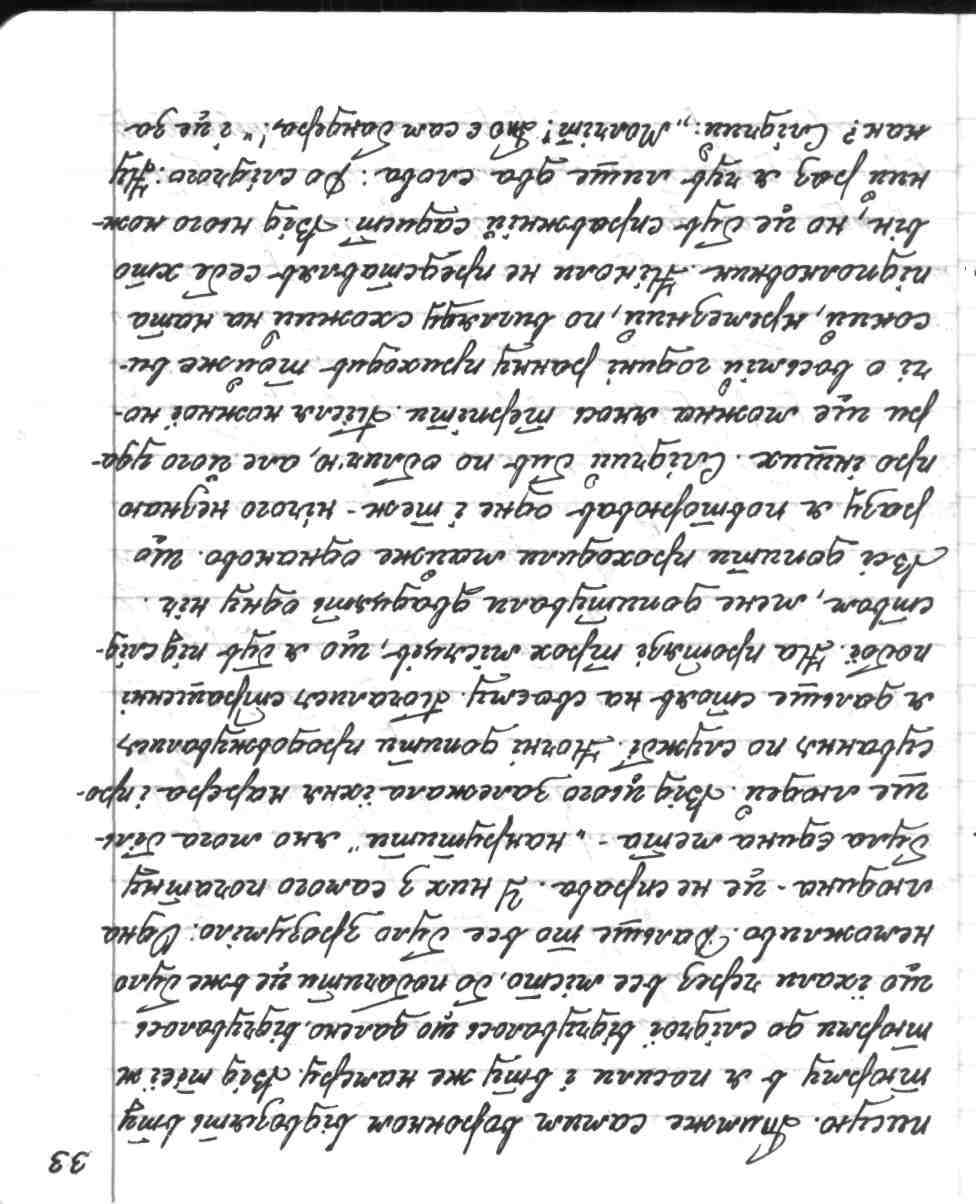 33
писую. Тимже самим воронком відвозять вту
тюрму в я носили і вту же камеру. Від тієї ж
тюрми до слідчої відчувалось що далеко, відчувалось
що їхали через все місто, бо побачити це вже було
неможливо. Дальше то все було зрозуміло: Одна
людина - це не справа. У них з самого початку
була єдина мета - „накрутити" яко мога біль-
ше людей. Від цього залежала їхня карєра і про-
сування по службі. Ночні допити продовжувались
я дальше стояв на своєму. Почались страшенні
побої. На протязі трох місяців, що я був під слід-
ством, мене допитували двадцять одну ніч.
Всі допити проходили майже однаково. що
разу я повторював одне і теж - нічого незнаю
про інших. Слідчий бив по обличю, але його уда-
ри ще можна якось терпіти. Після кожної но-
чі о восьмій годині ранку приходив тойже ви-
сокий, кремезний, по вигляду схожий на ката
підполковник. Ніколи не представляв себе хто
він, но це був справжній садист. Від нього кож-
ний раз я чув лише два слова: До слідчого: Ну
как? Слідчий: „Молчіт! Это є сам бандера!" і це до-